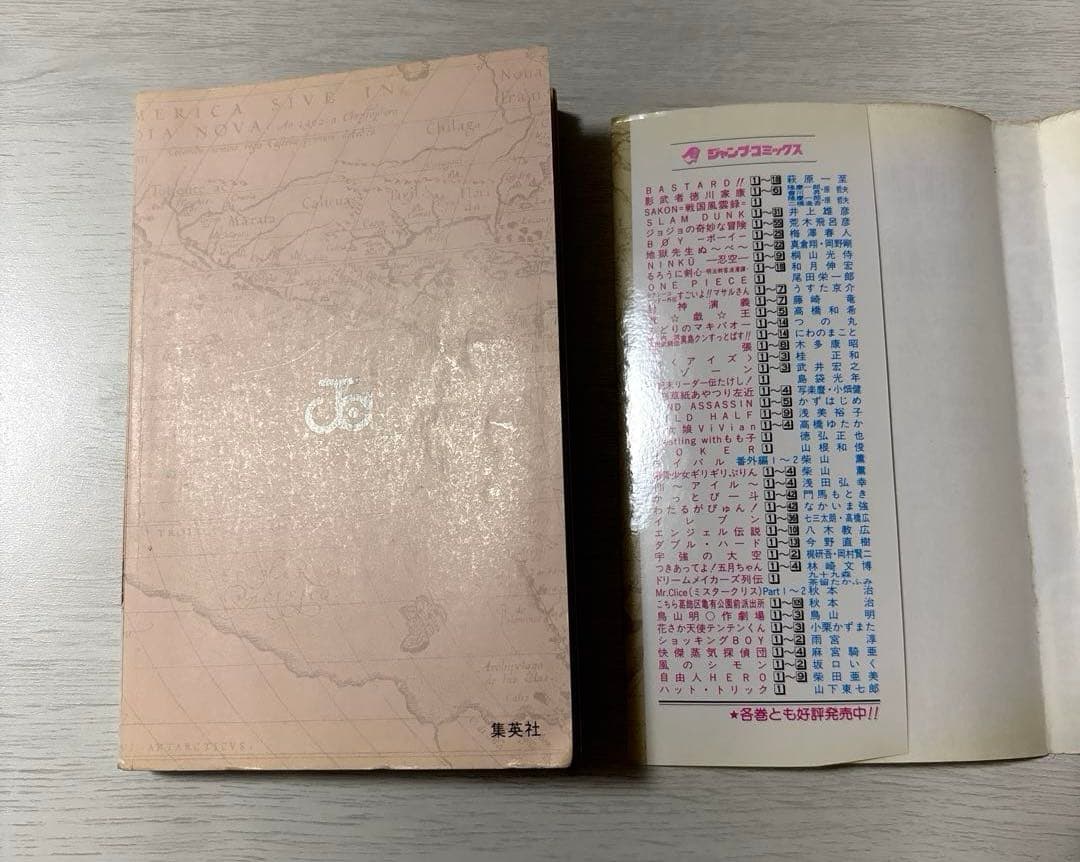 ERICA SIVE IN
NOVA
Chilaga
Calicua
Marata
Nova
ANTARCTICVS.
集英社
ジャンプ・コミックス
BASTARD!! 1〜18 萩原一至
影武者徳川家康
SAKON=戦国風雲録= 1
SLAM DUNK 1〜31 井上雄彦
ジョジョの奇妙な冒険 荒木飛呂彦
BØY ーボーイー 梅澤春人
地獄先生ぬ〜べ〜 真倉翔・岡野剛
NINKŪ ―忍空― 1〜9 桐山光侍
るろうに剣心 和月伸宏
ONE PIECE 1 尾田栄一郎
すごいよ!!マサルさん 1〜7 うすた京介
神演義 1〜7 藤崎竜
戯☆王 1〜5 高橋和希
どりのマキバオー 1〜14 つの丸
真島クンすっとばす!! 1〜14 にわのまこと
張 1〜9 木多康昭
〈アイズ〉 1〜3 桂正和
ゾーン 1〜3 武井宏之
末リーダー伝たけし! 1 島袋光年
草紙あやつり左近 1〜4 写楽麿・小畑健
ND ASSASSIN 1〜5 かずはじめ
LD HALF 1〜9 浅美裕子
娘ViVian 1〜4 高橋ゆたか
stling withもも子 1 徳弘正也
OKER 1 山根和俊
イバル 番外編1〜2 柴山薫
少女ギリギリぷりん 1〜4 柴山薫
〜アイル〜 1〜4 浅田弘幸
っとび一斗 門馬もとき
わたるがぴゅん! なかいま強
イレブン 七三太朗・高橋広
エンジェル伝説 1〜10 八木教広
ダブル・ハード 今野直樹
宇強の大空 1〜2 梶研吾・岡村賢二
つきあってよ!五月ちゃん 1〜4 林崎文博
ドリームメイカーズ列伝 1 九十九森 茶留たかふみ
Mr.Clice(ミスタークリス) Part 1〜2 秋本治
こちら葛飾区亀有公園前派出所 秋本治
鳥山明○作劇場 1〜3 鳥山明
花さか天使テンテンくん 1〜3 小栗かずまた
ショッキングBOY 1〜2 雨宮淳
快傑蒸気探偵団 1〜4 麻宮騎亜
風のシモン 1〜2 坂口いく
自由人HERO 1〜9 柴田亜美
ハット・トリック 1 山下東七郎
★各巻とも好評発売中!!